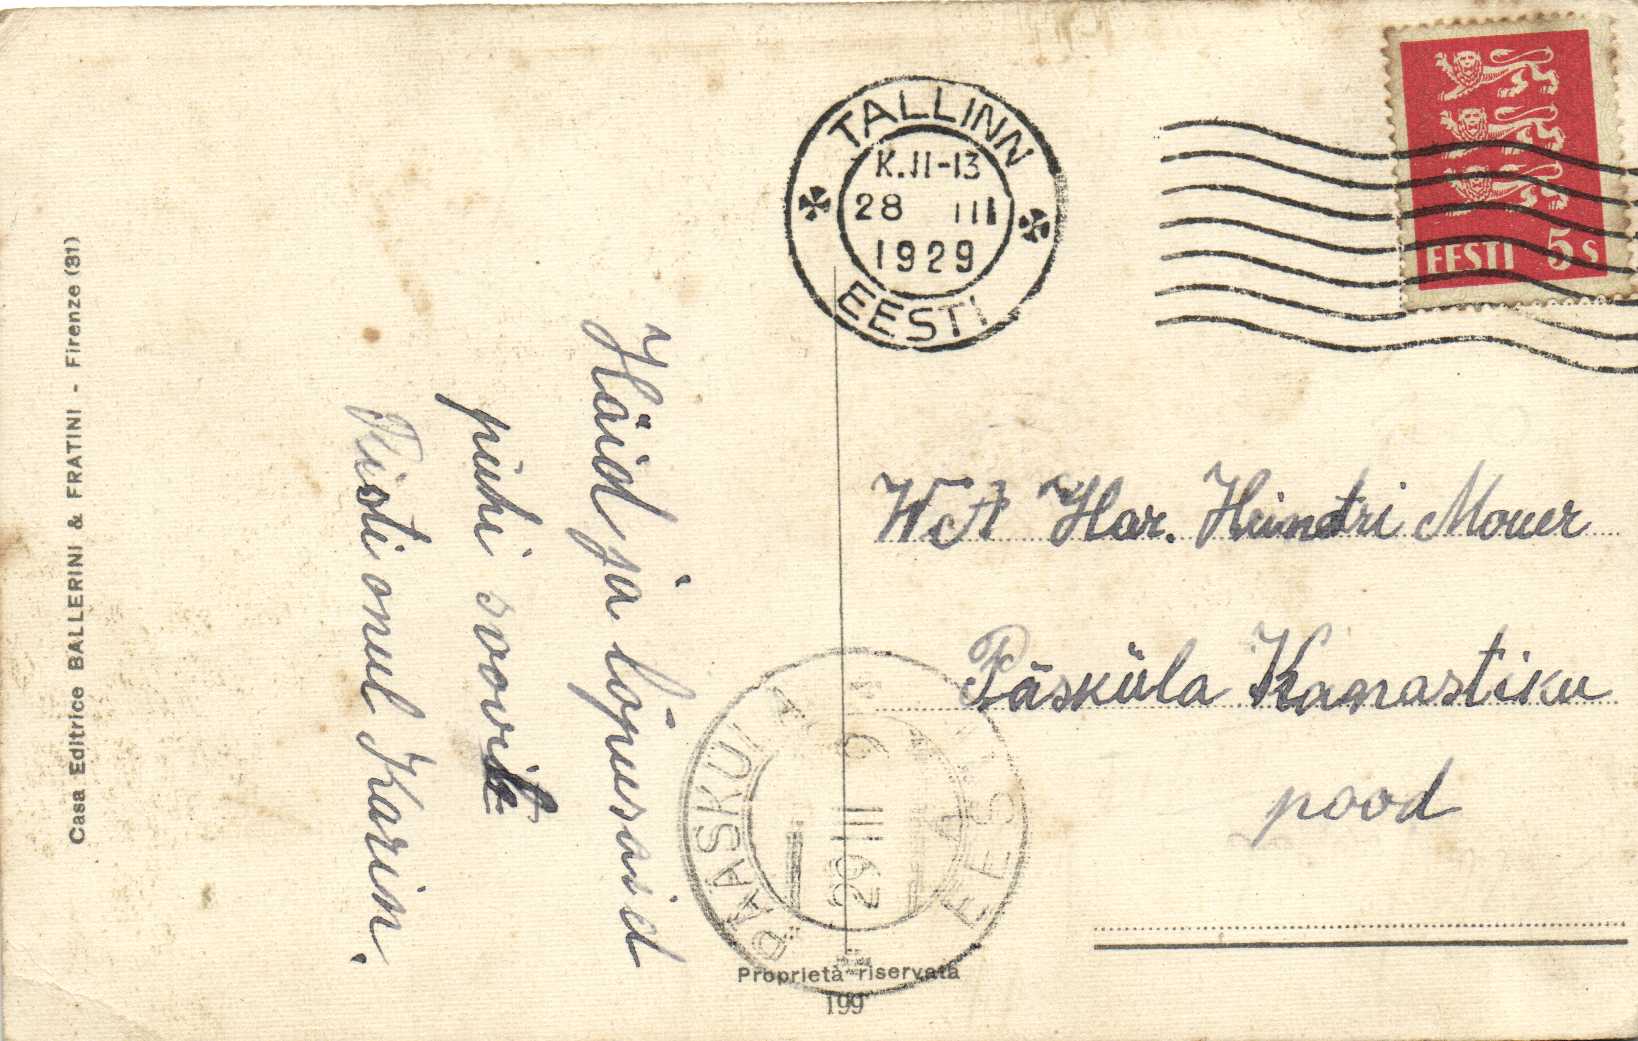 Casa Editrice BALLERINI & FRATINI - Firenze (31)
Häid ja lõpusaid
pühi soovib
Risti onul Karin.
TALLINN
K.11-13
28 III
1929
EESTI
EESTI 5 S
W.A Har. Heindri Mouer
Päsküla Kanastiku
pood
PÄÄSKÜLA
29 III 29
EESTI
Proprietà riservata
199